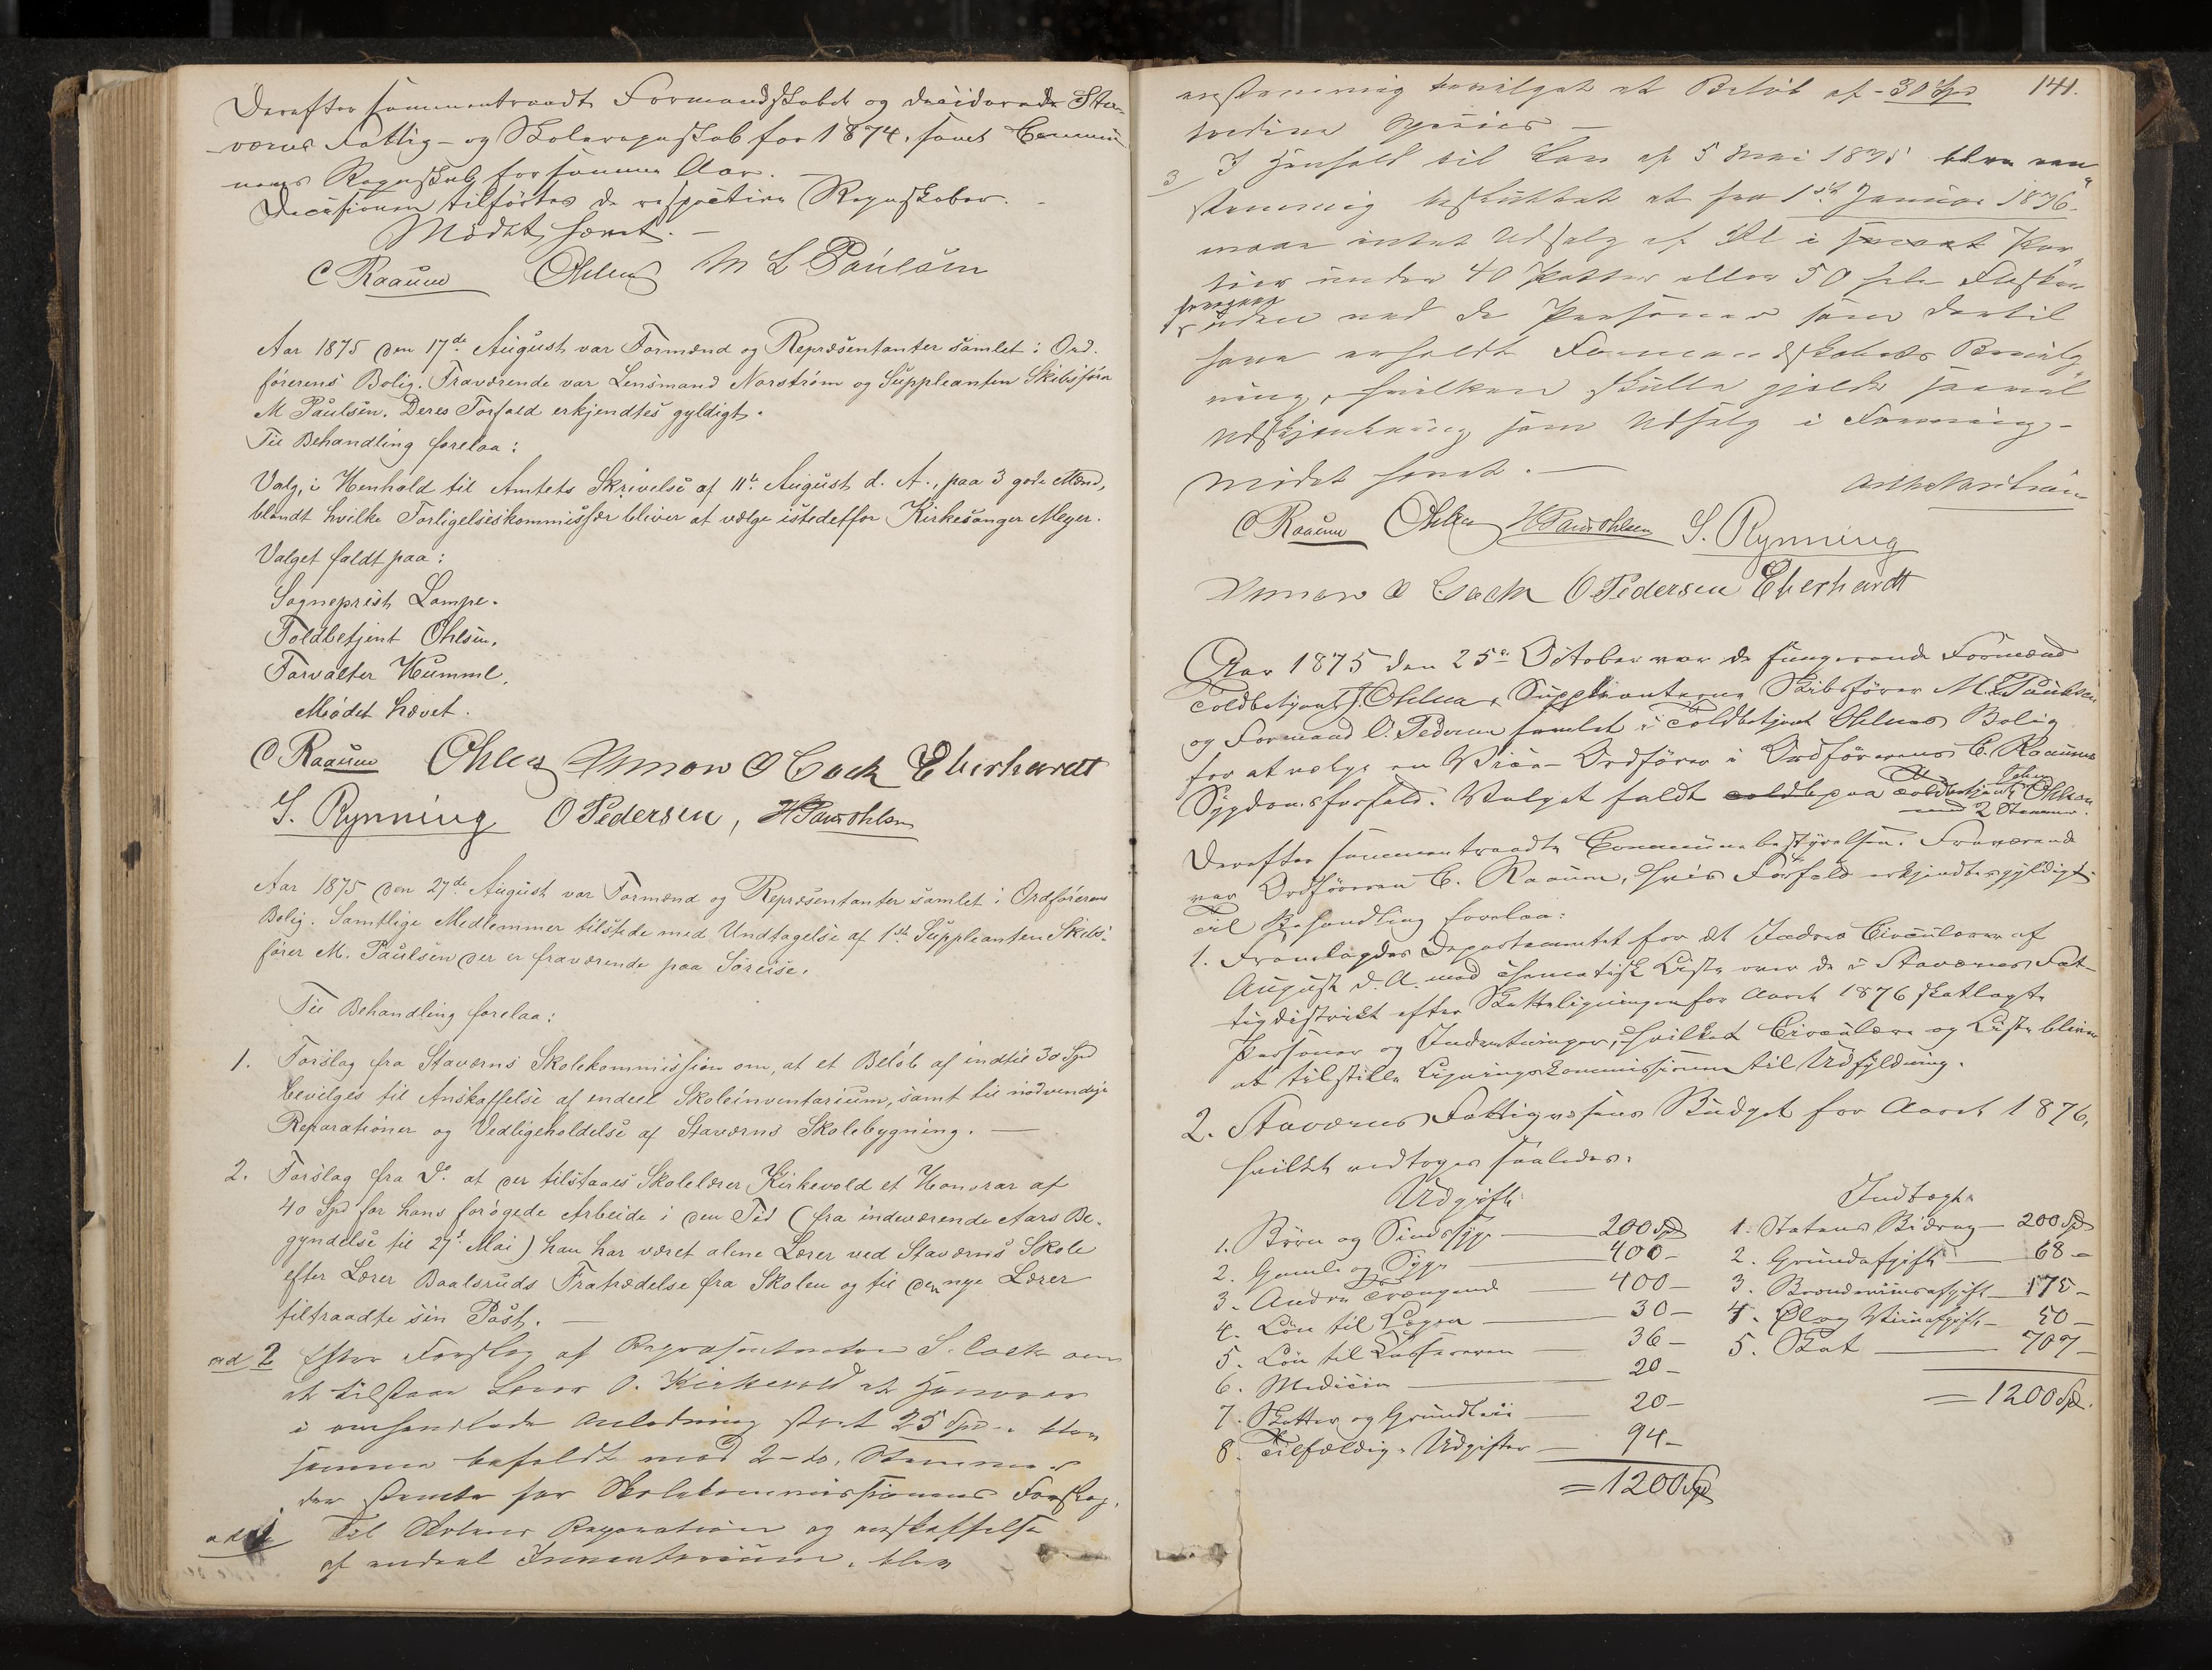 Derefter sammentraadte Formandskabet og deciderede Sta-
værns Fattig- og Skoleregnskab for 1874, samt Commu-
nens Regnskab for samme Aar. —
Decisionen tilførtes de respective Regnskaber. —
Mødet hævet. —
C Raaum Ohlsen M L Paulsen
Aar 1875 den 17de August var Formænd og Repræsentanter samlet i Ord-
førerens Bolig. Fraværende var Lensmand Norström og Suppleanten Skibsfører
M Paulsen. Deres Forfald erkjendtes gyldigt.
Til Behandling forelaa:
Valg, i Henhold til Amtets Skrivelse af 11te August d. A., paa 3 gode Mænd,
blandt hvilke Forligelseskommissær bliver at vælge istedetfor Kirkesanger Meyer.
Valget faldt paa:
Sogneprest Lampe.
Toldbetjent Ohlsen.
Forvalter Humml.
Mødet hævet.
C Raaum Ohlsen Simon C Cock Eberhardt
S. Rynning O Pedersen, H Paus Ohlsen
Aar 1875 den 27de August var Formænd og Repræsentanter samlet i Ordførerens
Bolig. Samtlige Medlemmer tilstede med Undtagelse af 1ste Suppleanten Skibs-
fører M. Paulsen der er fraværende paa Søreise.
Til Behandling forelaa:
1. Forslag fra Staværns Skolekommission om, at et Beløb af indtil 30 Spd
bevilges til Anskaffelse af endeel Skoleinventarium, samt til nødvendige
Reparationer og Vedligeholdelse af Staværns Skolebygning. —
2. Forslag fra Do. at der tilstaaes Skolelærer Kirkevold et Honorar af
40 Spd for hans forøgede Arbeide i den Tid (fra indeværende Aars Be-
gyndelse til 27de Mai) han har været alene Lærer ved Staværns Skole
efter Lærer Baalsruds Fratrædelse fra Skolen og til den nye Lærer
tiltraadte sin Post. —
ad 2 Efter Forslag af Repræsentanten S. Cock om
at tilstaae Lærer O. Kirkevold et Honorar
i omhandlede Anledning stort 25 Spd. blev
samme befaldt med 2-to, Stemmer
der stemte for Skolekommissionens Forslag.
ad 1 Til Skolens Reparation og anskaffelse
af endeel Inventarium, blev
141.
enstemmig bevilget et Beløb af - 30 Spd
tredive Species —
3 I Henhold til Lov af 5 Mai 1875 blev een
stemmig besluttet at fra 1st Januar 1876
maae intet Udsalg af Øl i smaat Par
tier under 40 Potter eller 50 hele Flasker
foregaae
uden ved de Personer som dertil
have erholdt Formandskabets Bevilg
ning, hvilken skulle gjelde saavel
Udskjænkning som Udsalg i Forening —
Mødet hævet. —
C Raaum Ohlsen H Paus Ohlsen S. Rynning
Simon C Cock O Pedersen Eberhardt
Aar 1875 den 25de October var de fungerende Formænd
Toldbetjent J. Ohlsen, Suppleanterne Skibsfører M. L. Paulsen
og Formand O. Pedersen samlet i Toldbetjent Ohlsens Bolig
for at vælge en Vice-Ordfører i Ordførerens C. Raaums
Sygdomsforfald. Valget faldt paa Toldbetjent John Ohlsen
med 2 Stemmer.
Derefter sammentraadte Communebestyrelsen. Fraværende
var Ordføreren C. Raaum, hvis Forfald erkjendtes gyldigt.
Til Behandling forelaa:
1. Fremlagdes Departementet for det Indres Circulærer af
August d. A. med schematisk Liste over de i Staværns Fat-
tigdistrikt efter Skatteligningen for Aaret 1876 skatlagte
Personer og Indretninger, hvilket Circulære og Liste bliver
at tilstille Ligningskommissionen til Udfyldning.
2. Staværns Fattigvæsens Budget for Aaret 1876,
hvilket vedtoges saaledes:
Udgift
1. Børn og Sindssyge — 200 Spd
2. Gamle og Syge — 400 —
3. Andre Trængende — 400 —
4. Løn til Lægen — 30 —
5. Løn til Kassereren — 36 —
6. Medicin — 20 —
7. Skatter og Grundleie — 20 —
8. Tilfældige Udgifter — 94 —
= 1200 Spd
Indtægt
1. Statens Bidrag — 200 Spd
2. Grundafgift — 68 —
3. Brændeviinsafgift — 175 —
4. Øl og Viinafgift — 50 —
5. Skat — 707 —
= 1200 Spd.